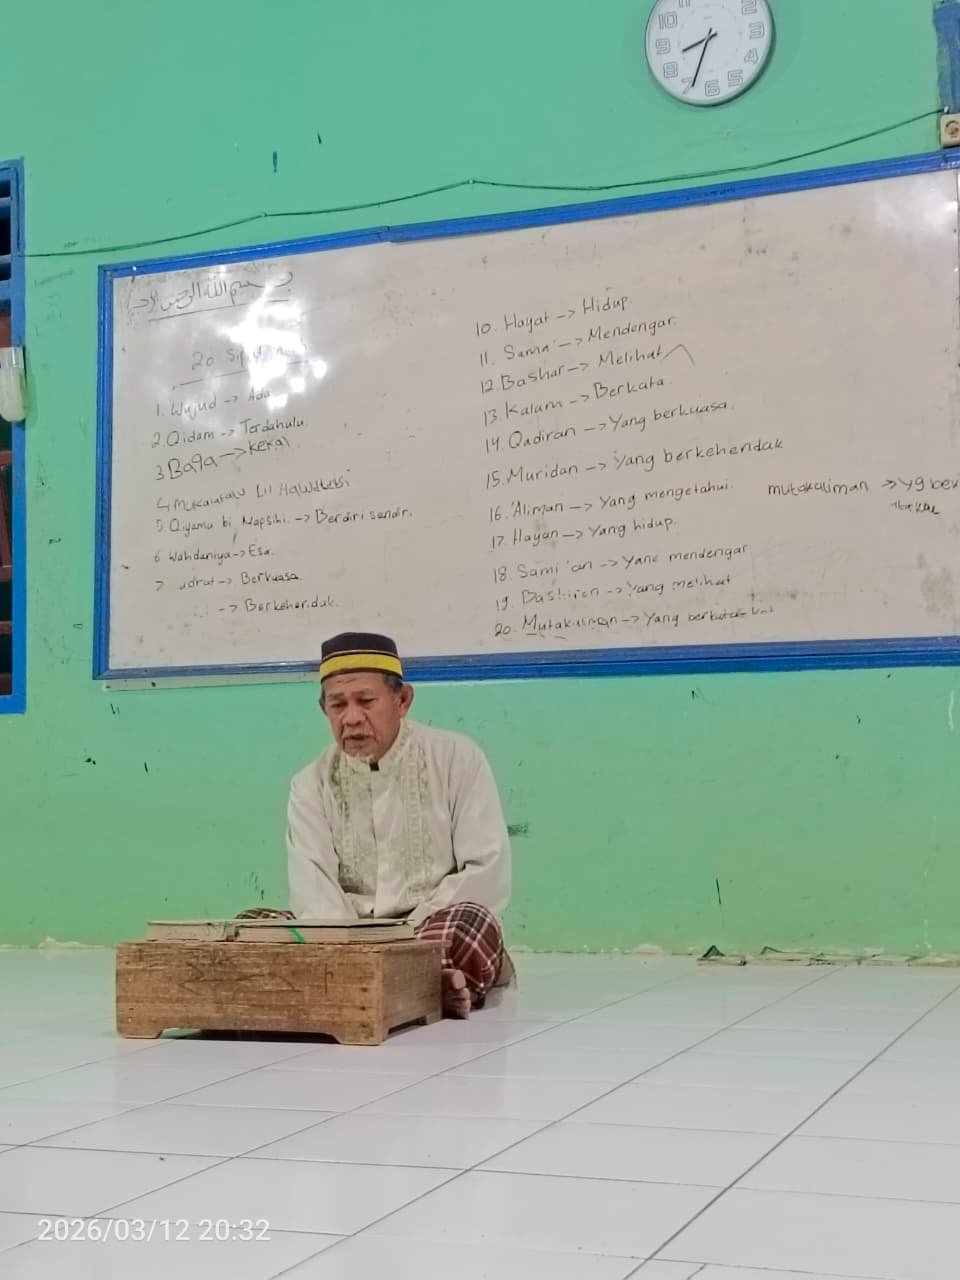 بسم الله الرحمن الرحيم
20 Sifat
1. Wujud -> Ada
2. Qidam -> Terdahulu
3 Baqa -> kekal
4 Mukalafatu Lil Hawadits
5. Qiyamu bi Napsihi. -> Berdiri sendiri.
6 Wahdaniya -> Esa.
7 udrat -> Berkuasa.
-> Berkehenduk.
10. Hayat -> Hidup.
11. Sama' -> Mendengar.
12. Bashar -> Melihat
13. Kalam -> Berkata.
14. Qadiran -> Yang berkuasa.
15. Muridan -> Yang berkehendak
16. 'Aliman -> Yang mengetahui.
17. Hayan -> Yang hidup.
18. Sami'an -> Yang mendengar
19. Bashiron -> Yang melihat
20. Mutakaliman -> Yang
mutakaliman -> yg
11
10
9
8
7
6
5
4
3
2
2026/03/12 20:32